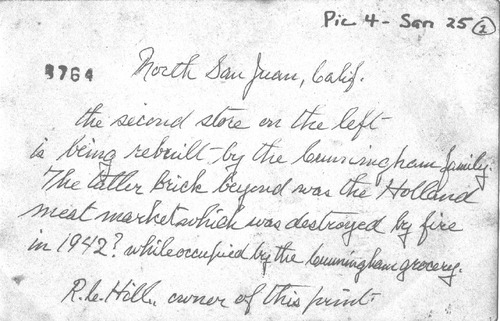 Pic 4 - San 25 (2)
3764 North San Juan, Calif.
the second store on the left
is being rebuilt by the Cunningham family.
The taller Brick beyond was the Holland
meat market which was destroyed by fire
in 1942? while occupied by the Cunningham grocery.
R.C. Hill., owner of this print.